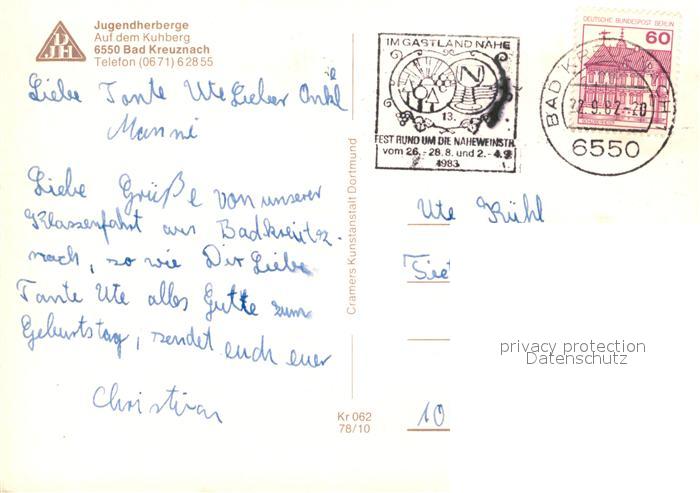 Jugendherberge
Auf dem Kuhberg
6550 Bad Kreuznach
Telefon (06 71) 6 28 55
Liebe Tante Ute Lieber Onkl
Manni
Liebe Grüße von unserer
Klassenfahrt aus Badkreutz-
nach, so wie Dir Liebe
Tante Ute alles Gutte zum
Geburtstag, sendet euch euer
Christian
Cramers Kunstanstalt Dortmund
Kr 062
78/10
IM GASTLAND NAHE
N
13.
FEST RUND UM DIE NAHEWEINSTR.
vom 26.-28.8. und 2.-4.9.
1983
DEUTSCHE BUNDESPOST BERLIN
60
BAD KREUZNACH
6550
Ute Kühl
10
privacy protection
Datenschutz